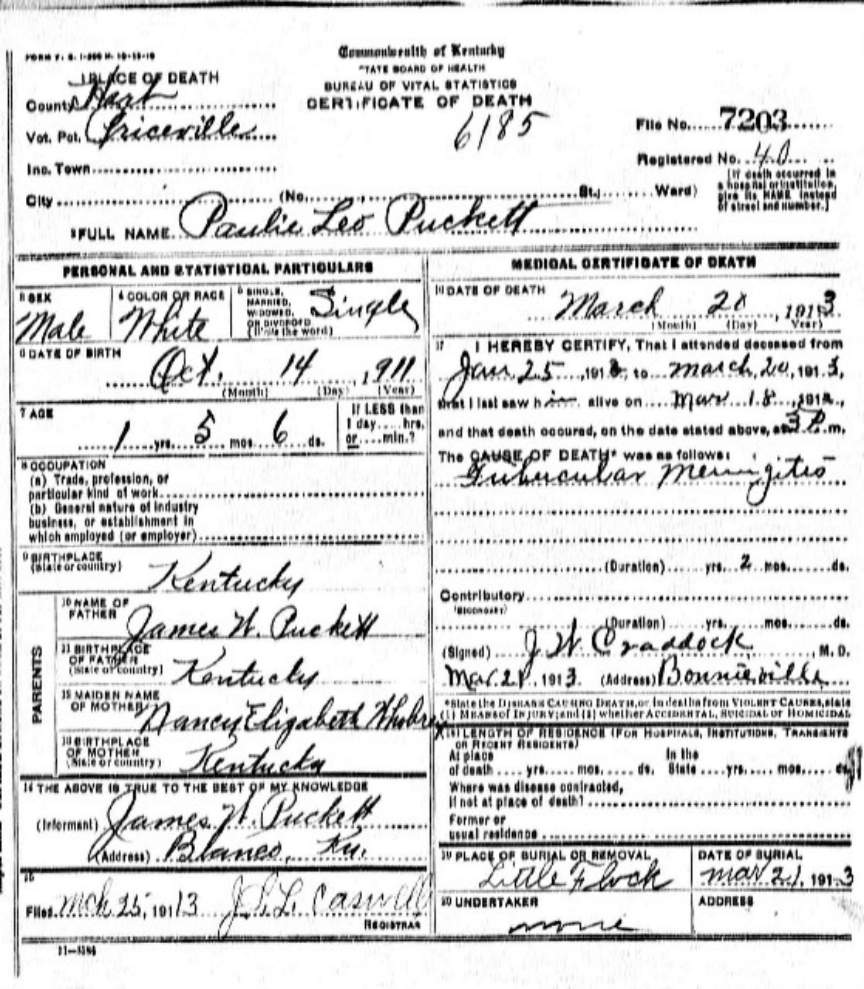 FORM V. S. 1-
Commonwealth of Kentucky
STATE BOARD OF HEALTH
BUREAU OF VITAL STATISTICS
CERTIFICATE OF DEATH
1 PLACE OF DEATH
County Hart
Vot. Pct. Priceville
6185
File No. 7203
Registered No. 40
Inc. Town
City (No. St., Ward)
[If death occurred in a hospital or institution, give its NAME instead of street and number.]
2 FULL NAME Paulie Leo Puckett
PERSONAL AND STATISTICAL PARTICULARS
3 SEX Male
4 COLOR OR RACE White
5 SINGLE, MARRIED, WIDOWED, OR DIVORCED (Write the word) Single
6 DATE OF BIRTH
Oct. 14 1911
(Month) (Day) (Year)
7 AGE
1 yrs. 5 mos. 6 ds.
If LESS than 1 day....hrs. or....min.?
8 OCCUPATION
(a) Trade, profession, or
particular kind of work
(b) General nature of industry
business, or establishment in
which employed (or employer)
9 BIRTHPLACE
(State or country) Kentucky
PARENTS
10 NAME OF
FATHER James W. Puckett
11 BIRTHPLACE
OF FATHER
(State or country) Kentucky
12 MAIDEN NAME
OF MOTHER Nancy Elizabeth
13 BIRTHPLACE
OF MOTHER
(State or country) Kentucky
14 THE ABOVE IS TRUE TO THE BEST OF MY KNOWLEDGE
(Informant) James W. Puckett
(Address) Ky.
15
Filed Mch 25, 1913 Caswell
REGISTRAR
11-3184
MEDICAL CERTIFICATE OF DEATH
16 DATE OF DEATH
March 20, 1913
(Month) (Day) (Year)
17 I HEREBY CERTIFY, That I attended deceased from
Jan 25, 1913, to March, 20, 1913,
that I last saw him alive on Mar 18, 191
and that death occured, on the date stated above, at 3 P.m.
The CAUSE OF DEATH* was as follows:
Tubucular Meningitis
(Duration) yrs. 2 mos. ds.
Contributory
(SECONDARY)
(Duration) yrs. mos. ds.
(Signed) J W Craddock, M. D.
Mar 21, 1913. (Address) Bonnieville
*State the DISEASE CAUSING DEATH, or, in deaths from VIOLENT CAUSES, state
(1) MEANS OF INJURY; and (2) whether ACCIDENTAL, SUICIDAL or HOMICIDAL
18 LENGTH OF RESIDENCE (FOR HOSPITALS, INSTITUTIONS, TRANSIENTS
OR RECENT RESIDENTS)
At place In the
of death yrs. mos. ds. State yrs. mos. ds.
Where was disease contracted,
if not at place of death?
Former or
usual residence
19 PLACE OF BURIAL OR REMOVAL
Little Flock
DATE OF BURIAL
Mar 21, 1913
20 UNDERTAKER
none
ADDRESS